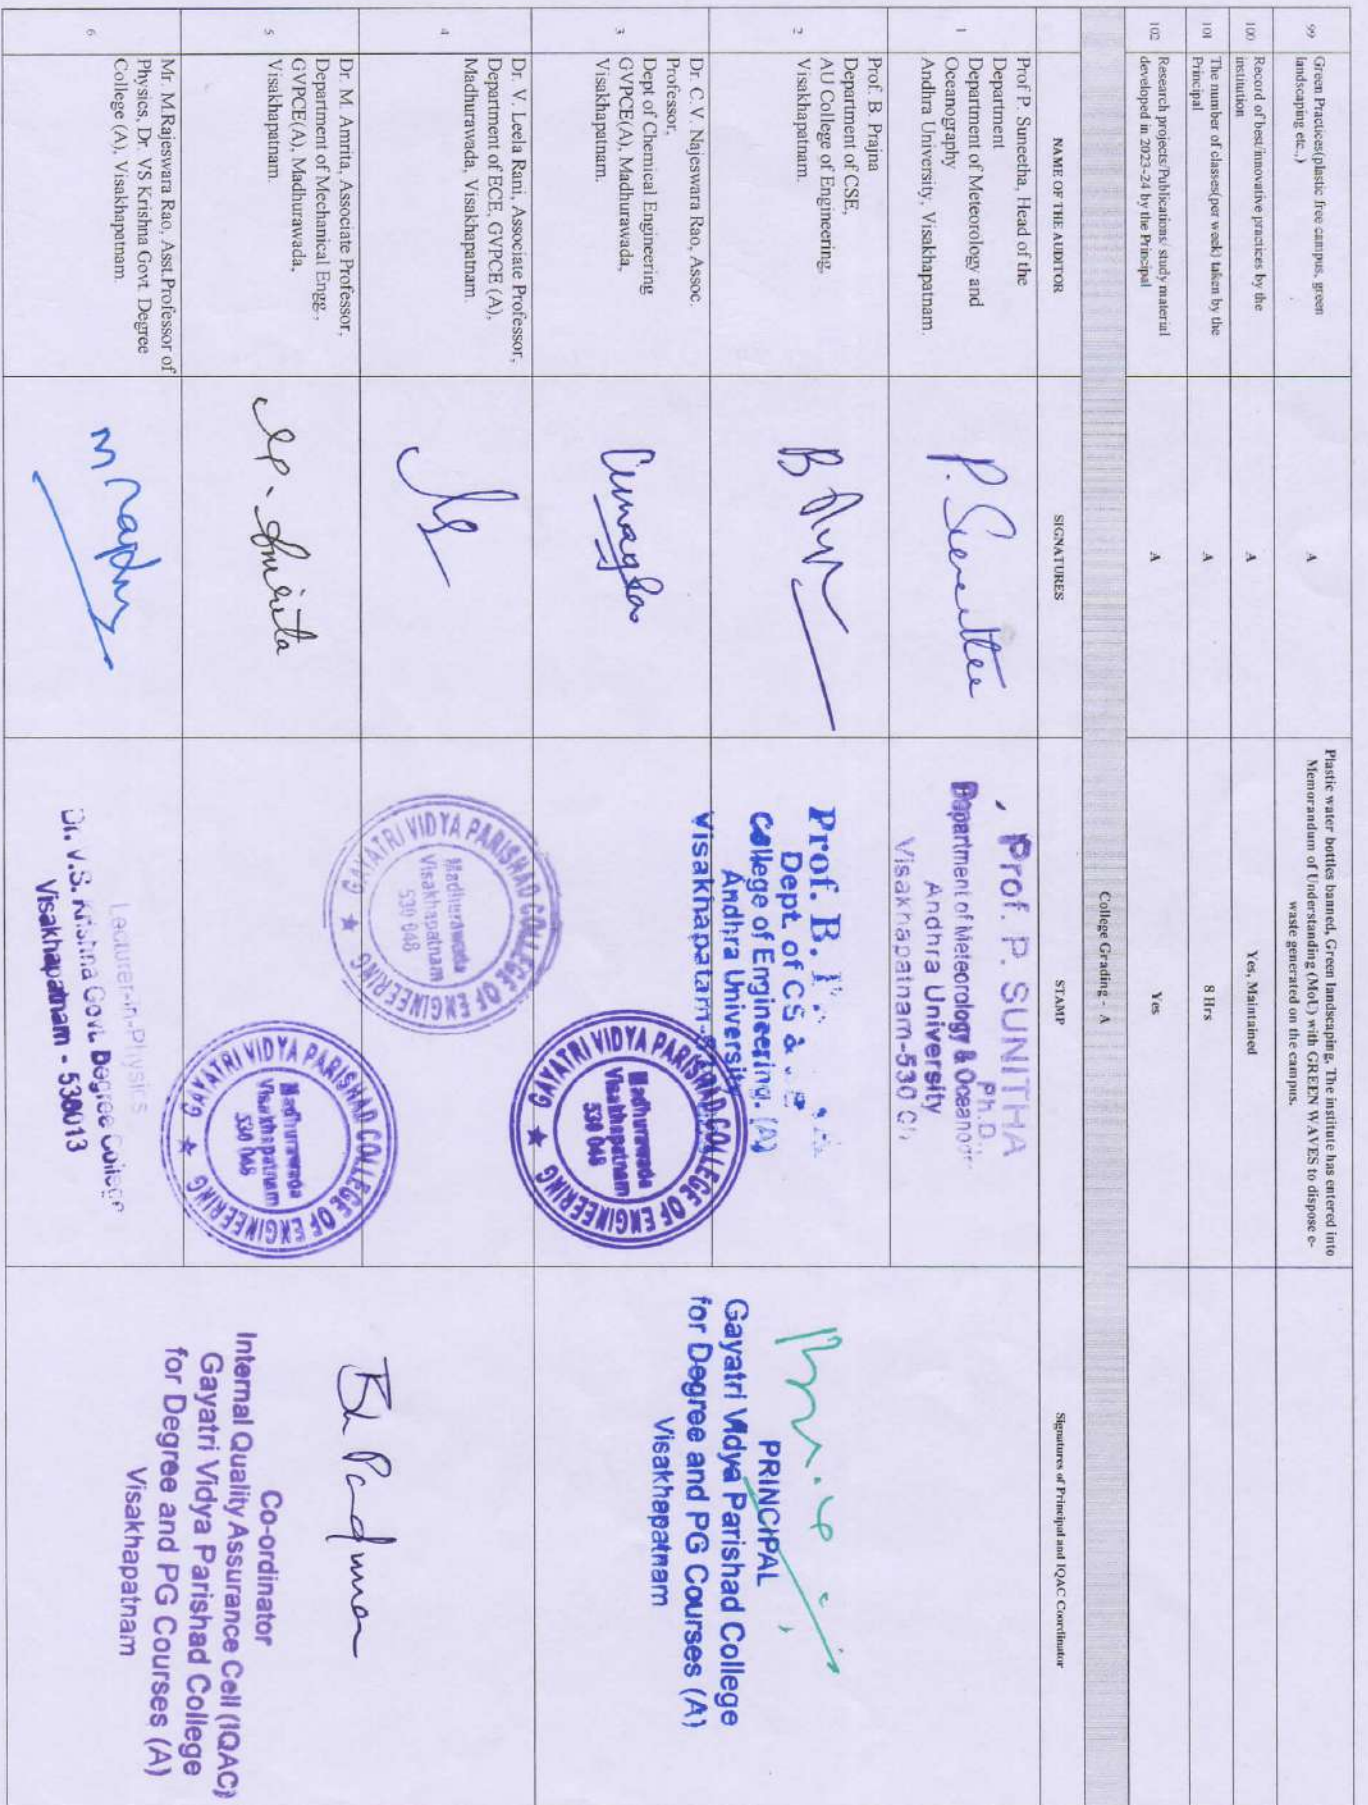 99
Green Practices(plastic free campus, green
landscaping etc.,)
A
Plastic water bottles banned, Green landscaping, The institute has entered into
Memorandum of Understanding (MoU) with GREEN WAVES to dispose e-
waste generated on the campus.
100
Record of best/innovative practices by the
institution
A
Yes, Maintained
101
The number of classes(per week) taken by the
Principal
A
8 Hrs
102
Research projects/Publications/ study material
developed in 2023-24 by the Principal
A
Yes
College Grading - A
NAME OF THE AUDITOR
SIGNATURES
STAMP
Signatures of Principal and IQAC Coordinator
1
Prof P. Suneetha, Head of the
Department
Department of Meteorology and
Oceanography
Andhra University, Visakhapatnam.
P. Suneetha
Prof. P. SUNITHA
Ph.D.
Department of Meteorology & Oceanogr
Andhra University
Visakhapatnam-530
2
Prof. B. Prajna
Department of CSE,
AU College of Engineering,
Visakhapatnam.
B
Prof. B.
Dept. of CS
College of Engineering. (A)
Andhra University
Visakhapatam-
PRINCIPAL
Gayatri Vidya Parishad College
for Degree and PG Courses (A)
Visakhapatnam
3
Dr. C.V. Najeswara Rao, Assoc.
Professor,
Dept of Chemical Engineering
GVPCE(A), Madhurawada,
Visakhapatnam.
GAYATRI VIDYA PARISHAD COLLEGE OF ENGINEERING
Madhurawada
Visakhapatnam
530 048
4
Dr. V. Leela Rani, Associate Professor,
Department of ECE, GVPCE (A),
Madhurawada, Visakhapatnam.
GAYATRI VIDYA PARISHAD COLLEGE OF ENGINEERING
Madhurawada
Visakhapatnam
530 048
5
Dr. M. Amrita, Associate Professor,
Department of Mechanical Engg.,
GVPCE(A), Madhurawada,
Visakhapatnam.
Amrita
GAYATRI VIDYA PARISHAD COLLEGE OF ENGINEERING
Madhurawada
Visakhapatnam
530 048
Co-ordinator
Internal Quality Assurance Cell (IQAC)
Gayatri Vidya Parishad College
for Degree and PG Courses (A)
Visakhapatnam
6
Mr. M.Rajeswara Rao, Asst.Professor of
Physics, Dr. VS Krishna Govt. Degree
College (A), Visakhapatnam.
Lecturer-in-Physics
Dr. V.S. Krishna Govt. Degree College
Visakhapatnam - 530013